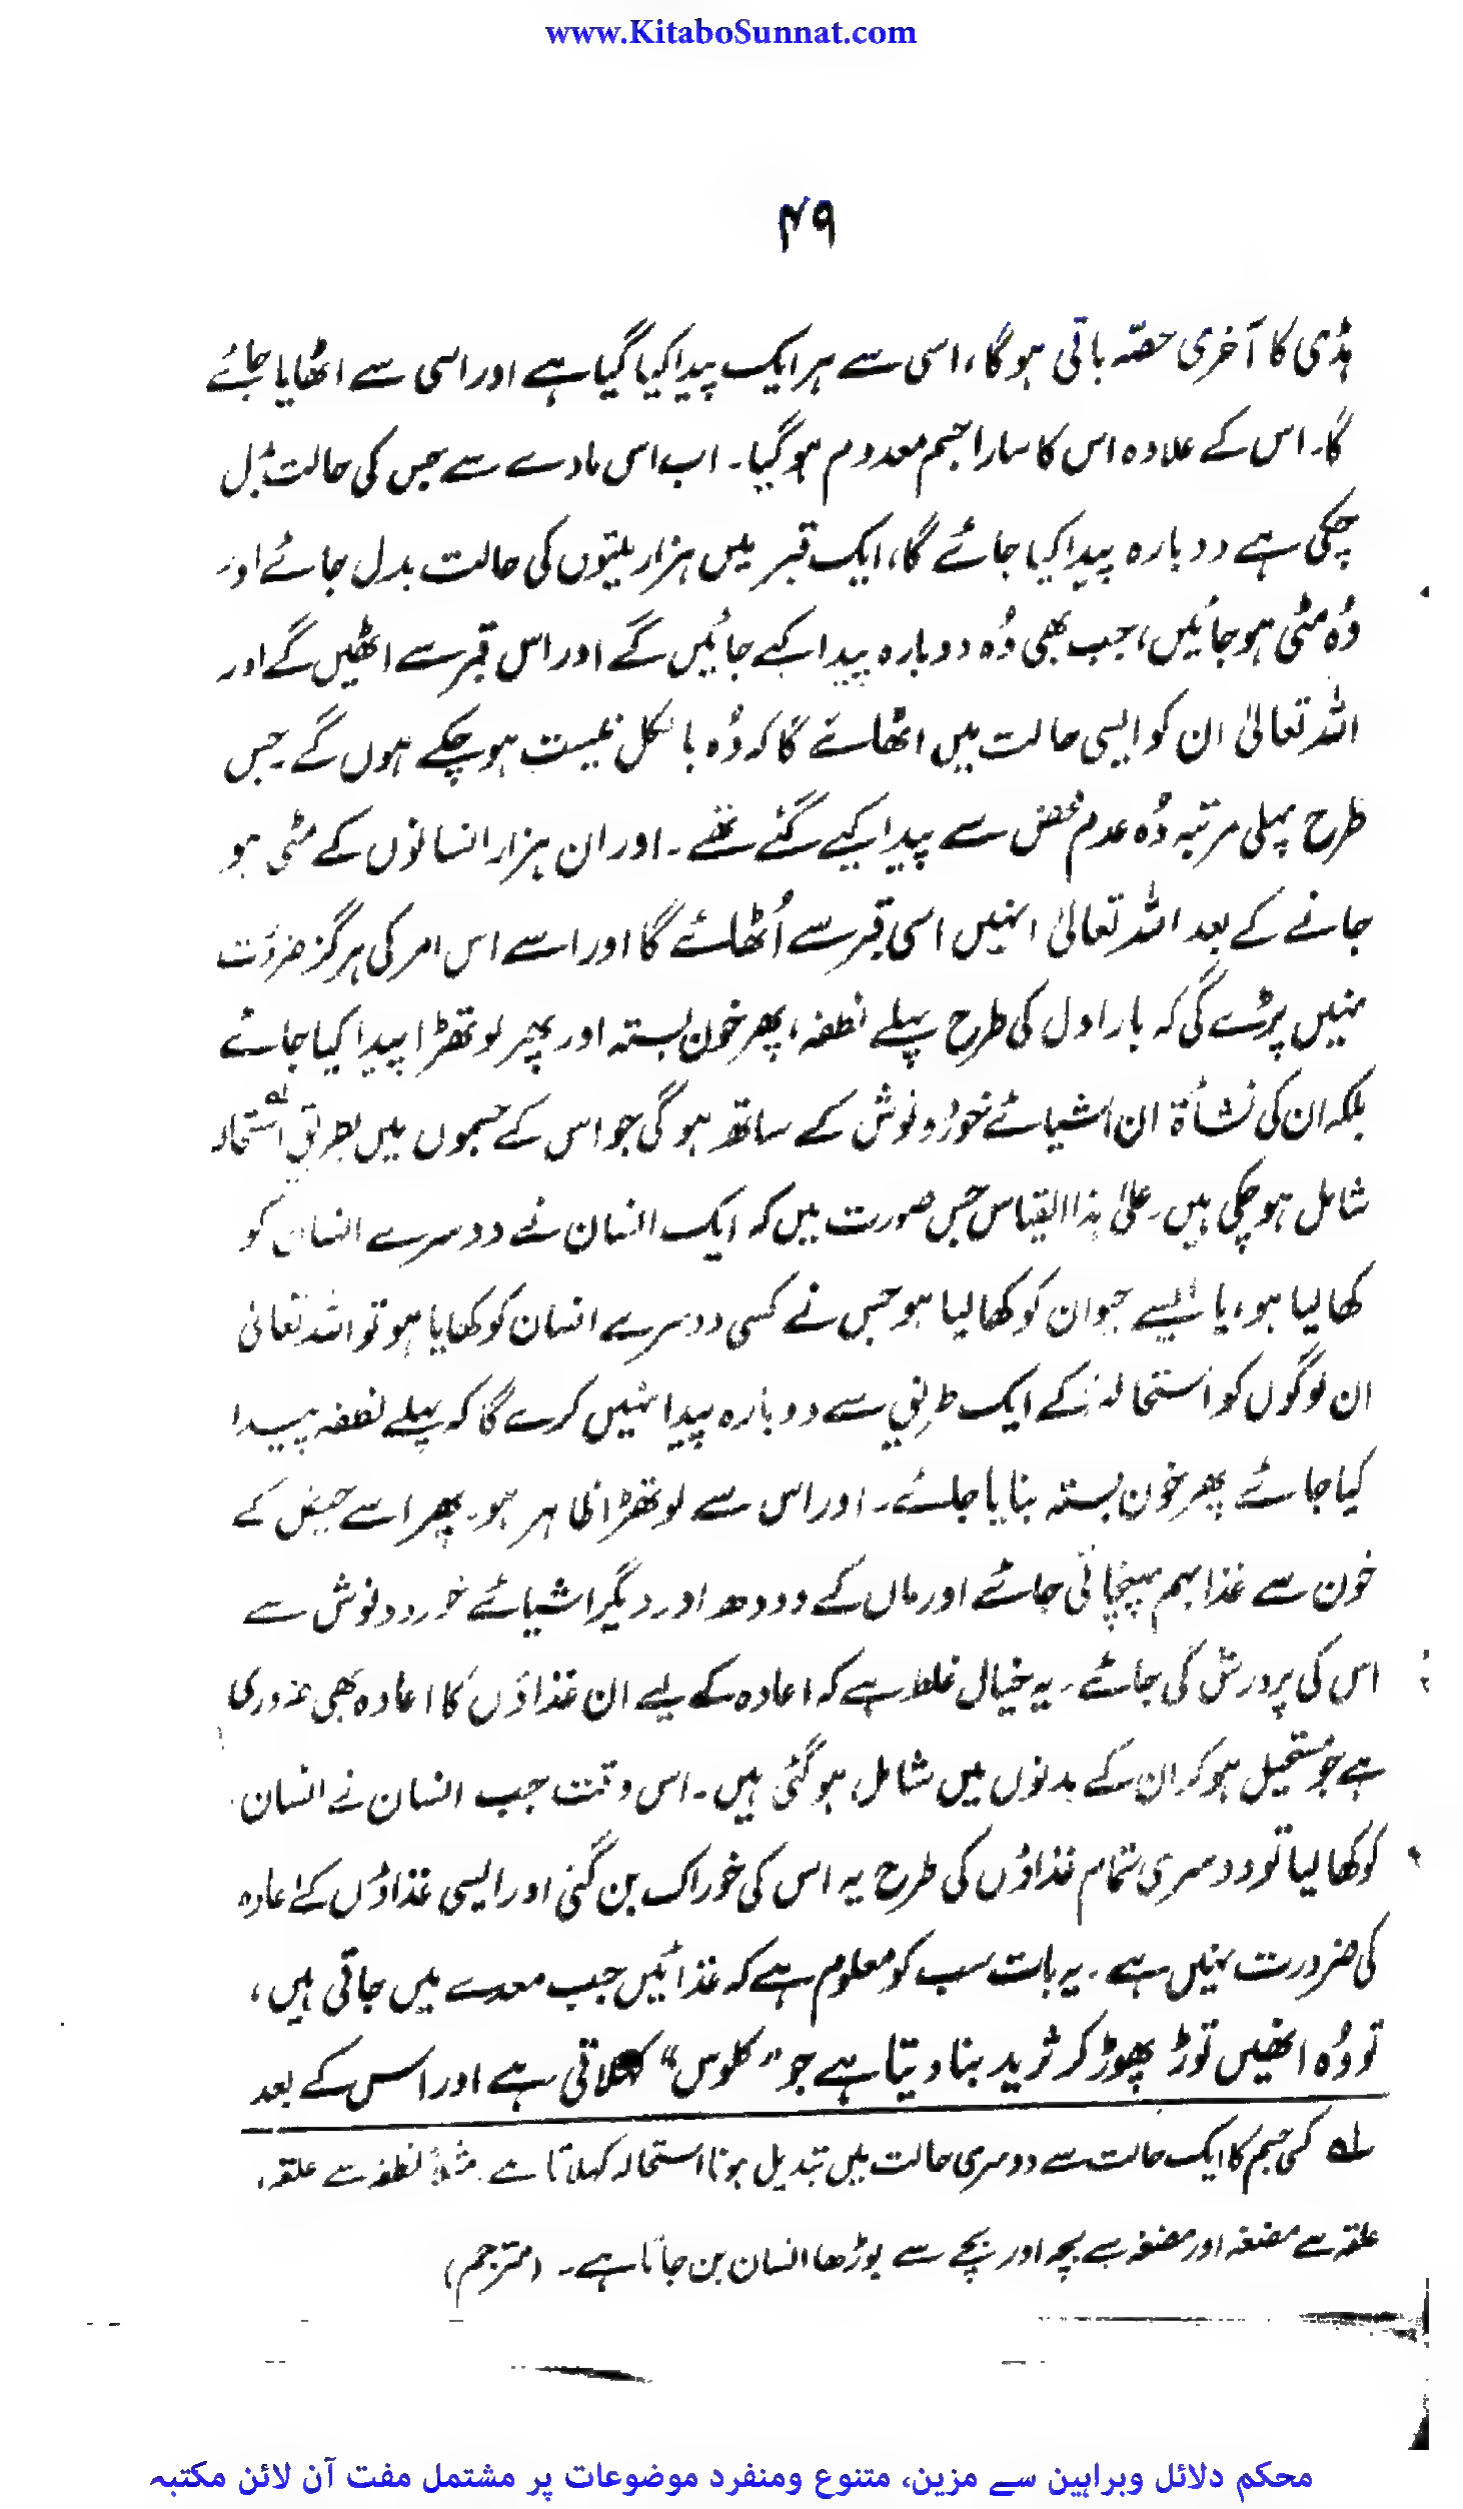 www.KitaboSunnat.com
۴۹
ہڈی کا آخری حصّہ باقی ہو گا، اسی سے ہر ایک پیدا کیا گیا ہے اور اسی سے اٹھایا جائے
گا۔ اس کے علاوہ اس کا سارا جسم معدوم ہو گیا۔ اب اس مادے سے جس کی حالت بدل
چکی ہے دوبارہ پیدا کیا جائے گا، ایک قبر میں ہزار میتوں کی حالت بدل جائے اور
وُہ مٹی ہو جائیں، جب بھی وُہ دوبارہ پیدا کیے جائیں گے اور اس قبر سے اٹھیں گے اور
اللہ تعالیٰ ان کو ایسی حالت میں اٹھائے گا کہ وُہ بالکل نیست ہو چکے ہوں گے۔ جس
طرح پہلی مرتبہ وُہ عدم محض سے پیدا کیے گئے تھے۔ اور ان ہزار انسانوں کے مٹی ہو
جانے کے بعد اللہ تعالیٰ انہیں اسی قبر سے اُٹھائے گا اور اسے اس امر کی ہرگز ضرورت
نہیں پڑے گی کہ بار اول کی طرح پہلے نطفہ، پھر خون بستہ اور پھر لوتھڑا پیدا کیا جائے
بلکہ ان کی نشأۃ ان اشیائے خورد و نوش کے ساتھ ہو گی جو اس کے جسموں میں بطریق استحالہ لہ
شامل ہو چکی ہیں۔ علیٰ ہذا القیاس جس صورت میں کہ ایک انسان نے دوسرے انسان کو
کھا لیا ہو، یا ایسے حیوان کو کھا لیا ہو جس نے کسی دوسرے انسان کو کھایا ہو تو اللہ تعالیٰ
ان لوگوں کو استحالہ کے ایک طریق سے دوبارہ پیدا نہیں کرے گا کہ پہلے نطفہ پیدا
کیا جائے پھر خون بستہ بنایا جائے۔ اور اس سے لوتھڑا ظاہر ہو۔ پھر اسے حیض کے
خون سے غذا بہم پہنچائی جائے اور ماں کے دودھ اور دیگر اشیائے خورد و نوش سے
اس کی پرورش کی جائے۔ یہ خیال غلط ہے کہ اعادہ کے لیے ان غذاؤں کا اعادہ بھی ضروری
ہے جو مستحیل ہو کر ان کے بدنوں میں شامل ہو گئی ہیں۔ اس وقت جب انسان نے انسان
کو کھا لیا تو دوسری تمام غذاؤں کی طرح یہ اس کی خوراک بن گئی اور ایسی غذاؤں کے اعادہ
کی ضرورت نہیں ہے۔ یہ بات سب کو معلوم ہے کہ غذائیں جب معدے میں جاتی ہیں،
تو وُہ انھیں توڑ پھوڑ کر ثرید بنا دیتا ہے جو "کلوس" کہلاتی ہے اور اس کے بعد
لہ کسی جسم کا ایک حالت سے دوسری حالت میں تبدیل ہونا استحالہ کہلاتا ہے۔ مثلاً نطفہ سے علقہ،
علقہ سے مضغہ اور مضغہ سے بچہ اور بچے سے بوڑھا انسان بن جاتا ہے۔ (مترجم)
محکم دلائل وبراہین سے مزین، متنوع ومنفرد موضوعات پر مشتمل مفت آن لائن مکتبہ